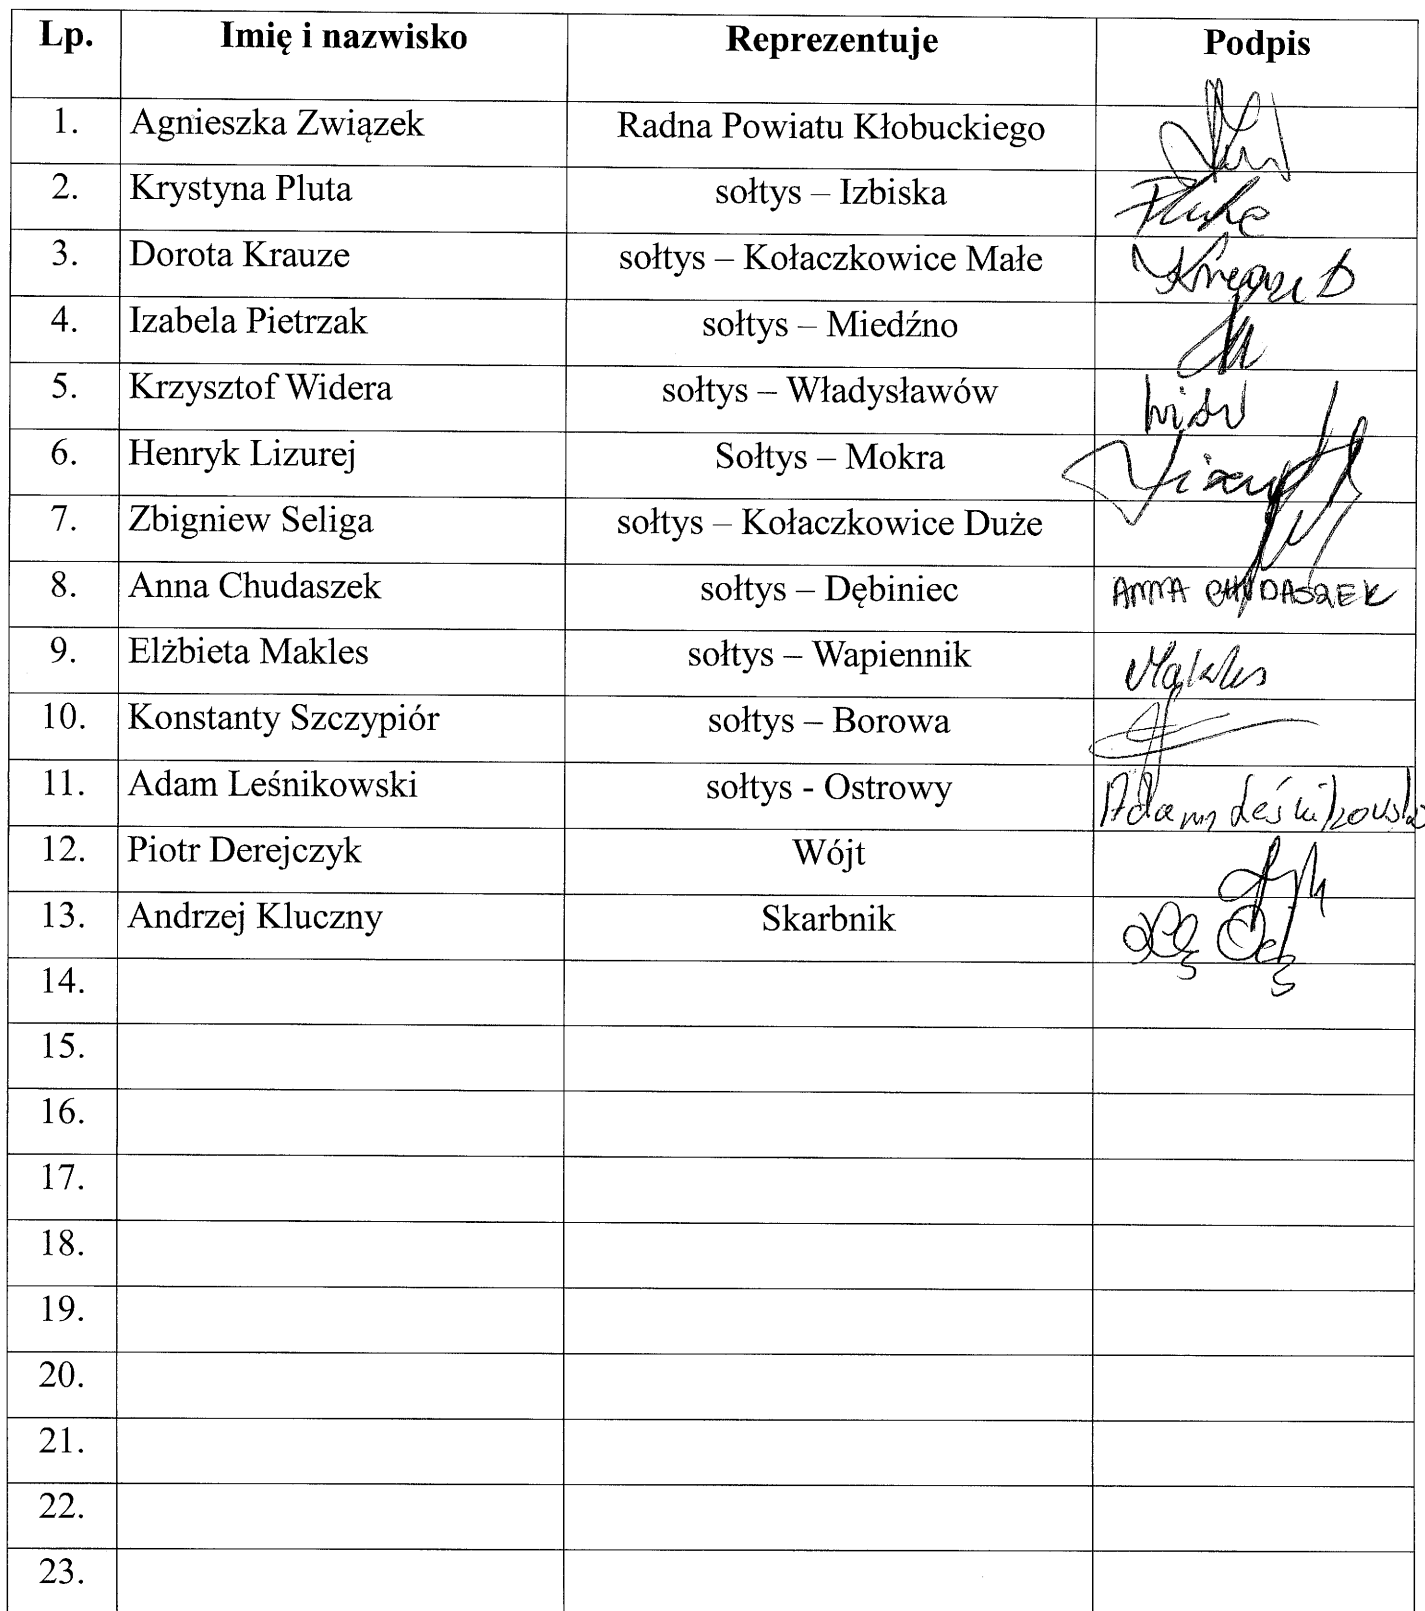 Lp. Imię i nazwisko Reprezentuje Podpis
1. Agnieszka Związek Radna Powiatu Kłobuckiego
2. Krystyna Pluta sołtys – Izbiska Pluta
3. Dorota Krauze sołtys – Kołaczkowice Małe Krauze D
4. Izabela Pietrzak sołtys – Miedźno
5. Krzysztof Widera sołtys – Władysławów
6. Henryk Lizurej Sołtys – Mokra
7. Zbigniew Seliga sołtys – Kołaczkowice Duże
8. Anna Chudaszek sołtys – Dębiniec ANNA CHUDASZEK
9. Elżbieta Makles sołtys – Wapiennik Makles
10. Konstanty Szczypiór sołtys – Borowa
11. Adam Leśnikowski sołtys - Ostrowy Adam Leśnikowski
12. Piotr Derejczyk Wójt
13. Andrzej Kluczny Skarbnik
14.
15.
16.
17.
18.
19.
20.
21.
22.
23.